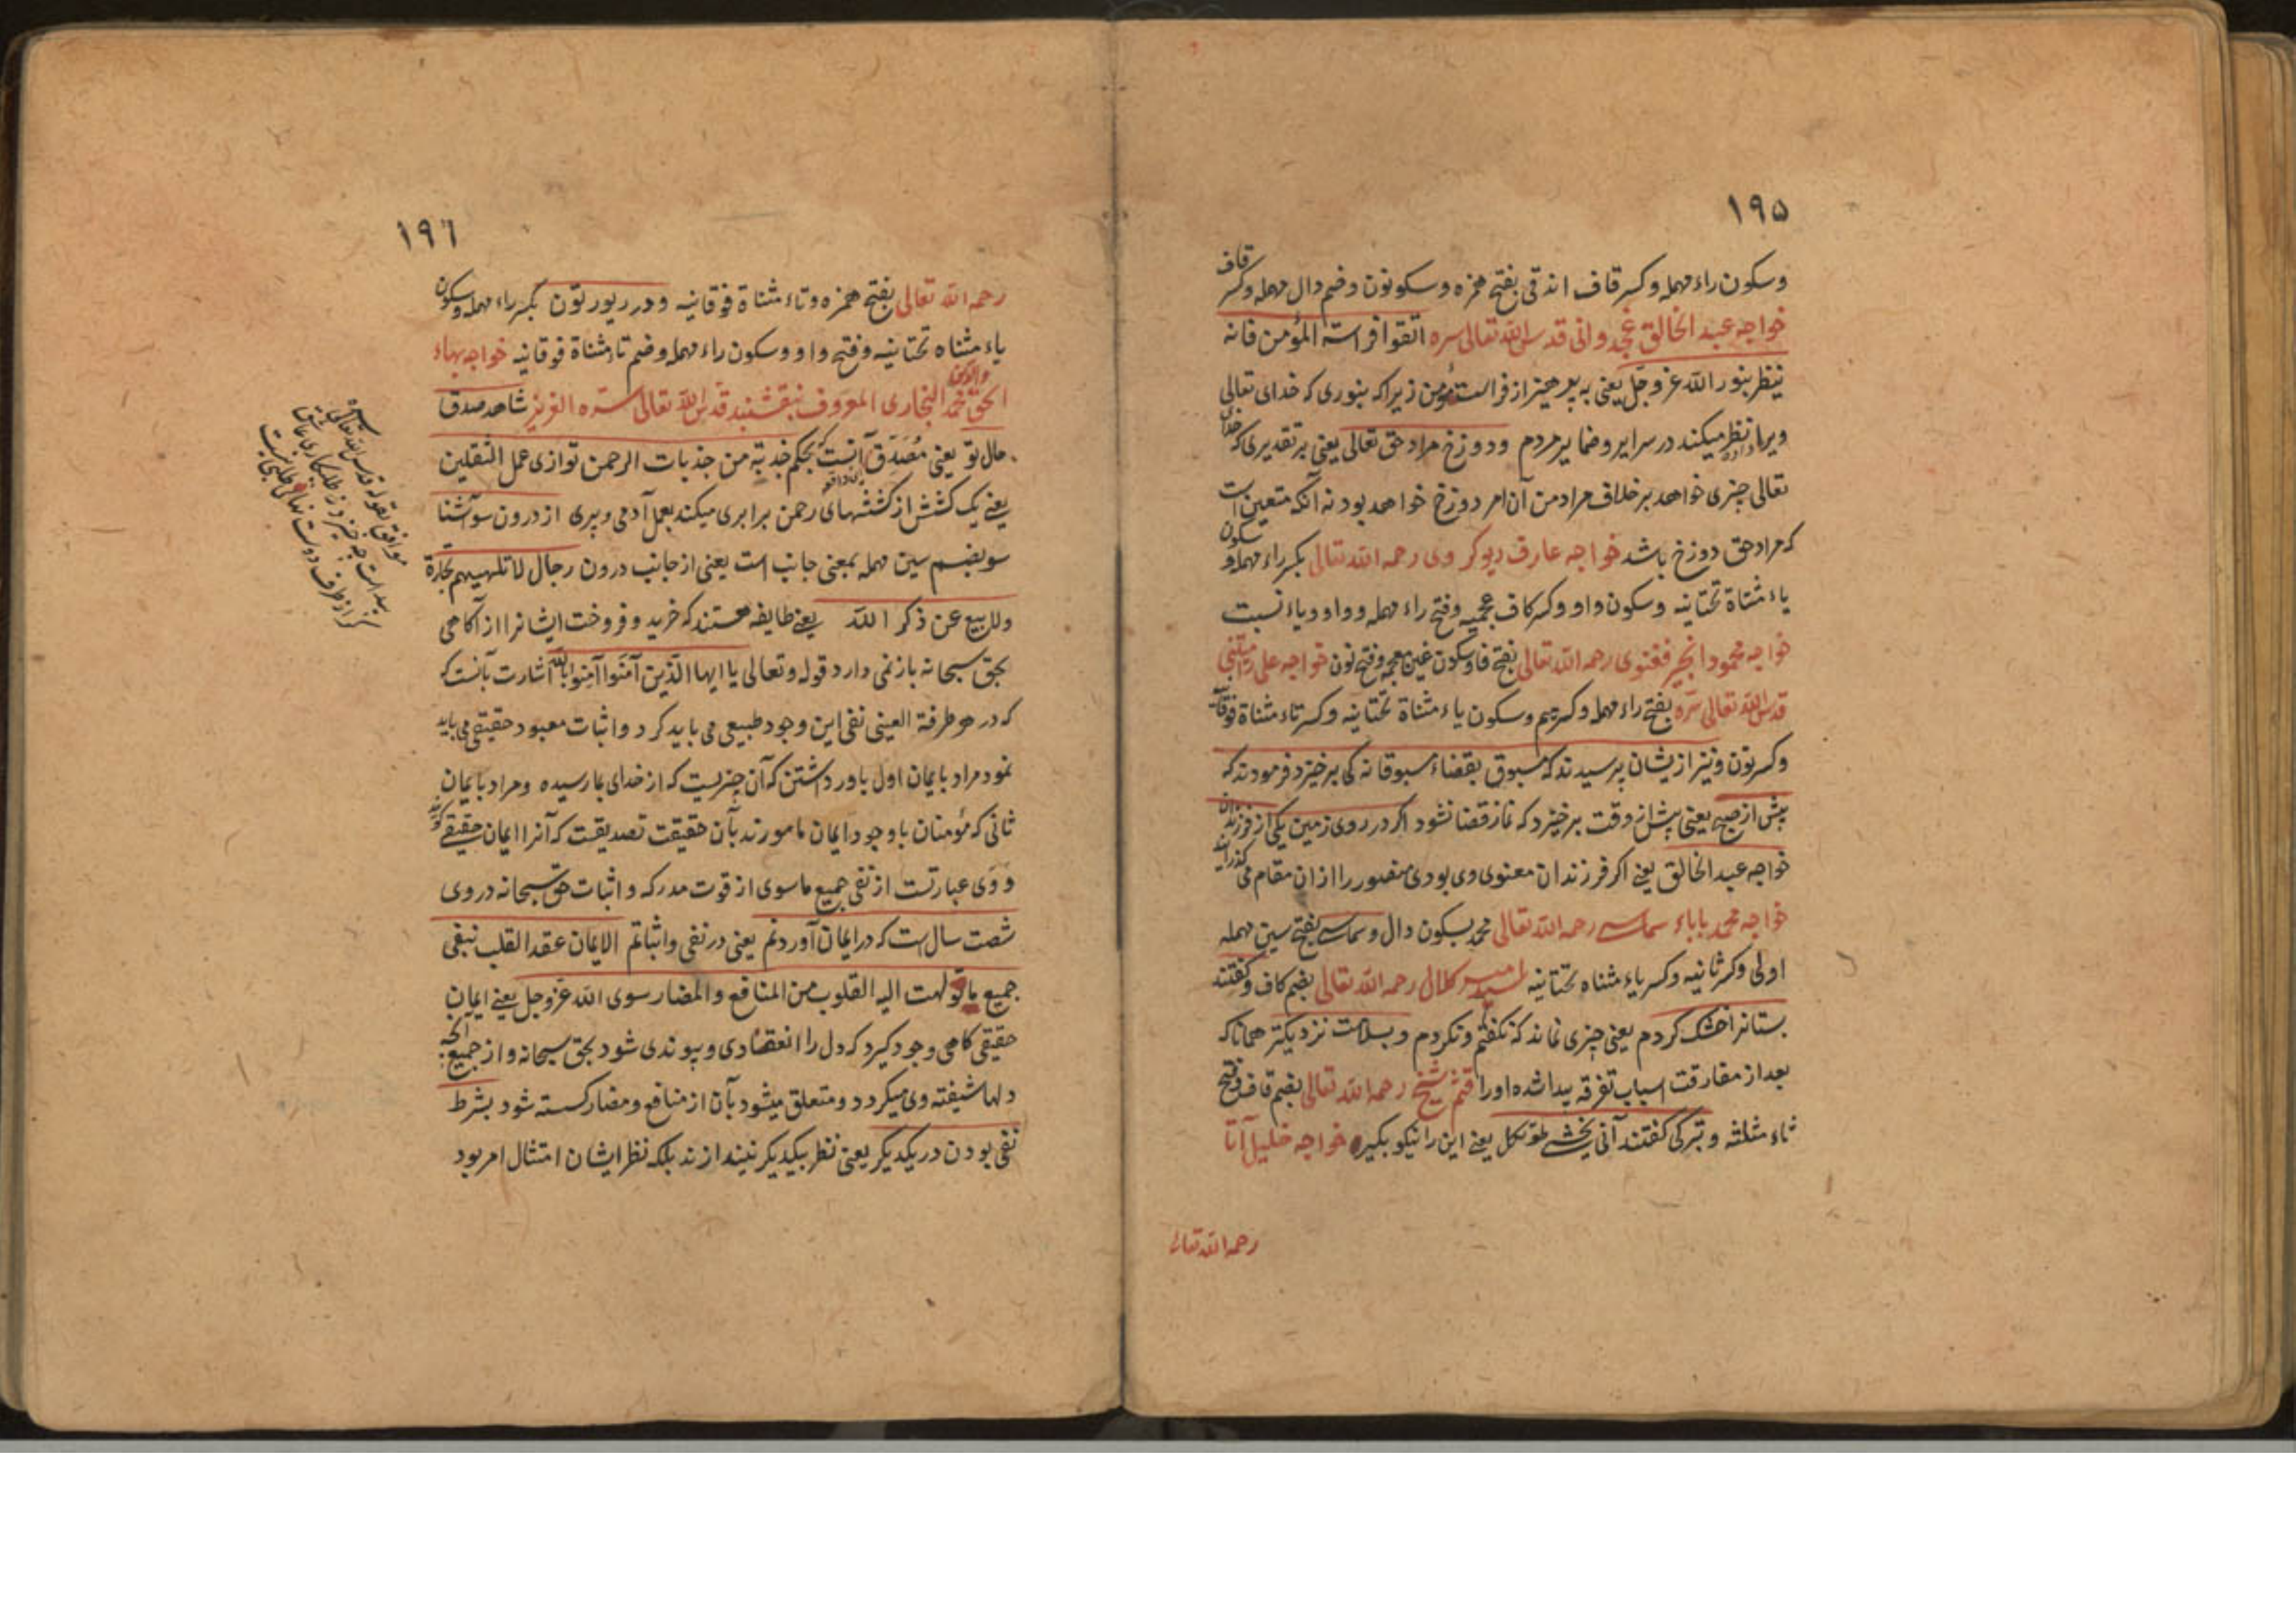 ١٩٥
وسکون راء مهمله وکسر قاف اندقی بفتح همزه وسکونون وضم دال مهمله وکسر قاف
خواجه عبد الخالق غجدوانی قدس الله تعالی سره اتقوا فراسته المؤمن فانه
ینظر بنور الله عزوجل یعنی به پرهیز از فراست مؤمن زیراکه بنوری که خدای تعالی
ویرا داده نظر میکند در سرایر وضمایر مردم ودوزخ مراد حق تعالی یعنی بر تقدیری که خدای
تعالی چیزی خواهد برخلاف مراد من آن امر دوزخ خواهد بود نه آنکه متعین است
که مراد حق دوزخ باشد خواجه عارف ریوکروی رحمه الله تعالی بکسر راء مهمله وسکون
یاء مثناة تحتانیه وسکون واو وکسر کاف عجمیه وفتح راء مهمله وواو ویاء نسبت
خواجه محمود انجیر فغنوی رحمه الله تعالی بفتح فا وسکون غین معجمه وفتح نون خواجه علی رامیتنی
قدس الله تعالی سره بفتح راء مهمله وکسر میم وسکون یاء مثناة تحتانیه وکسر تاء مثناة فوقانیه
وکسر نون ونیز از یشان پرسیدند که مسبوق بقضاء مسبوقانه کی برخیزد فرمودند که
پیش از صبح یعنی پیش از وقت برخیزد که نماز قضا نشود اکر در روی زمین یکی از فرزندان
خواجه عبد الخالق یعنی اکر فرزندان معنوی وی بودی منصور را ازان مقام می کذرانید
خواجه محمد باباء سماسی رحمه الله تعالی محمد بسکون دال وسماسی بفتح سین مهمله
اولی وکسر ثانیه وکسر یاء مثناه تحتانیه سید امیر کلال رحمه الله تعالی بضم کاف وکفتند
بستانرا خشک کردم یعنی چیزی نماند که نکفتم ونکردم وبسلامت نزدیکتر همانا که
بعد از مفارقت اسباب تفرقه پیدا شده اورا قثم شیخ رحمه الله تعالی بضم قاف وفتح
ثاء مثلثه وترکی کفتند آنی یخشی طوتکل یعنی این را نیکو بکیر خواجه خلیل آتا
رحمه الله تعالی
١٩٦
رحمه الله تعالی بفتح همزه وتاء مثناة فوقانیه ودر ریورتون بکسر راء مهمله وسکون
یاء مثناه تحتانیه وفتح واو وسکون راء مهمله وضم تاء مثناة فوقانیه خواجه بهاء
الحق والدین محمد البخاری المعروف بنقشبند قدس الله تعالی سره العزیز شاهد صدق
حال تو یعنی مصدق آنست که بحکم جذبة من جذبات الرحمن توازی عمل الثقلین
یعنی یک کشش از کششهای رحمن برابری میکند بعمل آدمی وپری از درون سو آشنا
سو بضم سین مهمله بمعنی جانب است یعنی از جانب درون رجال لا تلهیهم تجارة
ولا بیع عن ذکر الله یعنی طایفه هستند که خرید وفروخت ایشانرا از آکاهی
بحق سبحانه باز نمی دارد قوله وتعالی یا ایها الذین آمنوا آمنوا بالله اشارت بآنست که
که در هر طرفة العینی نفی این وجود طبیعی می باید کرد واثبات معبود حقیقی می باید
نمود مراد بایمان اول باور داشتن که آن چیزیست که از خدای بما رسیده ومراد بایمان
ثانی که مؤمنان باوجود ایمان مامورند بآن حقیقت تصدیقست که آنرا ایمان حقیقی کویند
ووی عبارتست از نفی جمیع ماسوی از قوت مدرکه واثبات حق سبحانه در وی
شصت سال است که در ایمان آوردنم یعنی در نفی واثباتم الایمان عقد القلب بنفی
جمیع ما تولهت الیه القلوب من المنافع والمضار سوی الله عزوجل یعنی ایمان
حقیقی کاهی وجود کیرد که دل را انعقادی وپیوندی شود بحق سبحانه واز جمیع آنچه
دلها شیفته وی میکردد ومتعلق میشود بآن از منافع ومضار کسسته شود بشرط
نفی بودن در یکدیکر یعنی نظر بیکدیکر نیندازند بلکه نظر ایشان امتثال امر بود